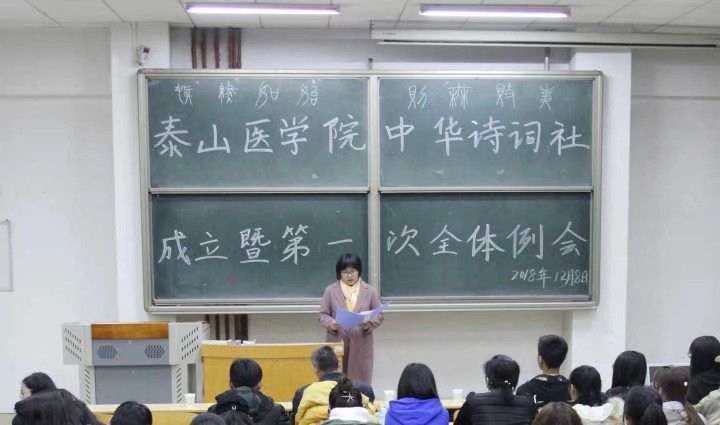 泰山医学院中华诗词社
成立暨第一次全体例会
2018年12月8日